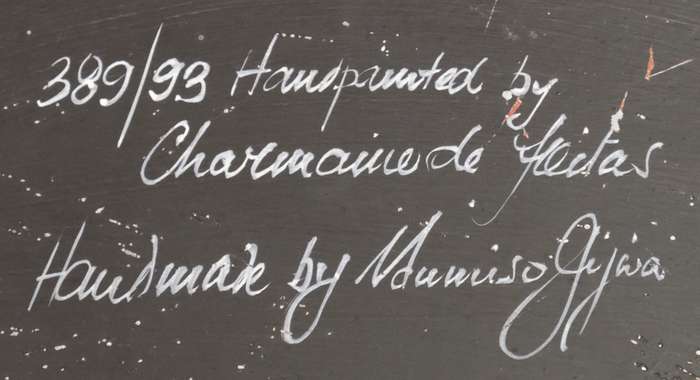 389/93 Handpainted by
Charmaine de Freitas
Handmade by